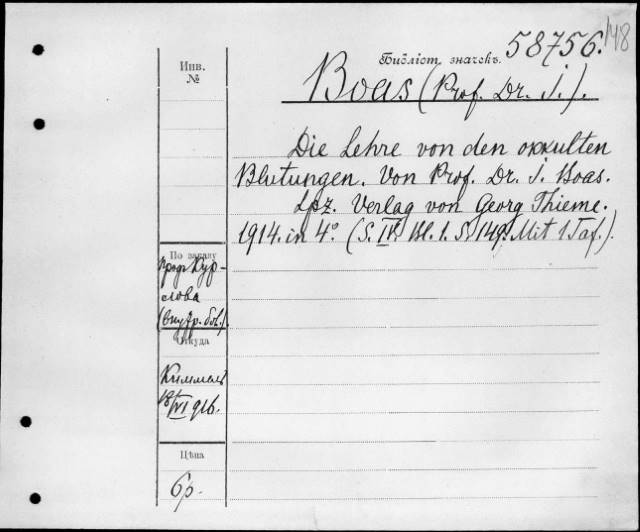 58756. 148
Библіот. значекъ.
Инв.
№
Boas (Prof. Dr. I.).
Die Lehre von den okkulten
Blutungen. Von Prof. Dr. I. Boas.
Lpz. Verlag von Georg Thieme.
1914. in 4° (S. IV. Bl. 1. S. 149. Mit 1 Taf.).
По заказу
проф. Кур-
слова
(внутр. бол.).
Откуда
Киммель
18/VI 916.
Цѣна
6 р.